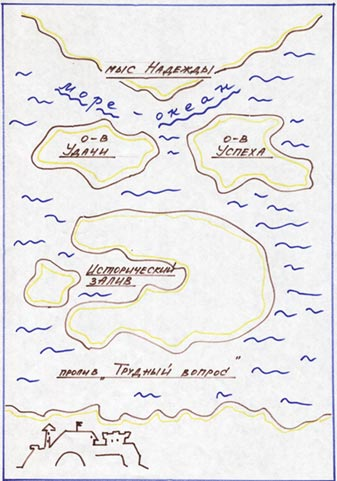 МЫС НАДЕЖДЫ
МОРЕ - ОКЕАН
О-В
УДАЧИ
О-В
УСПЕХА
ИСТОРИЧЕСКИЙ
ЗАЛИВ
ПРОЛИВ „ТРУДНЫЙ ВОПРОС"